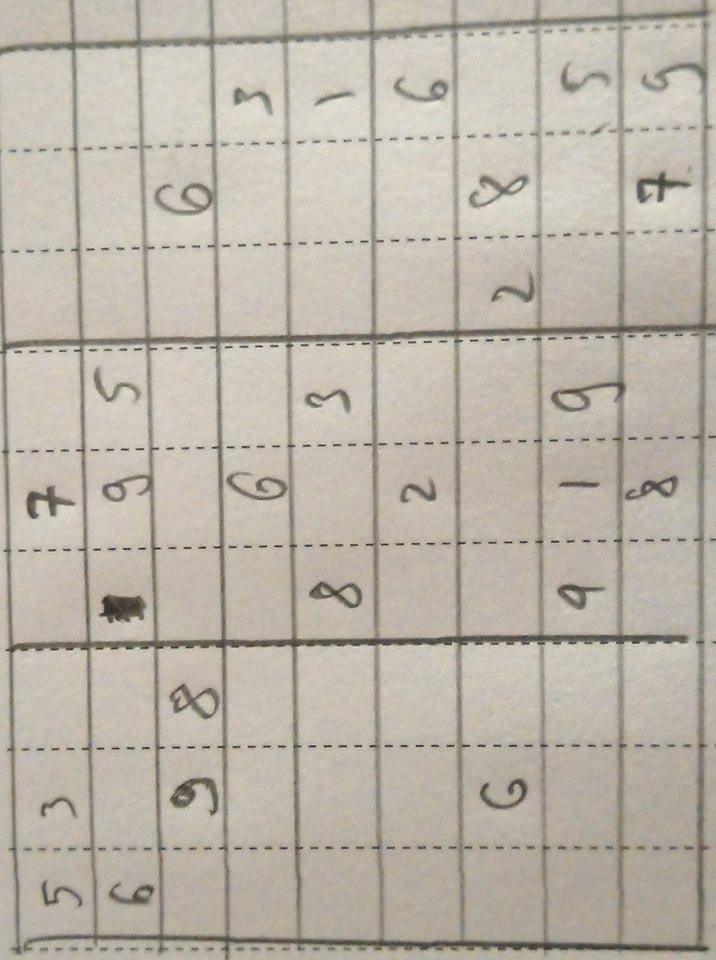 5 3 7
6 9 5
9 8 6
6 3
8 3 1
2 6
6 2 8
4 1 9 5
8 7 9